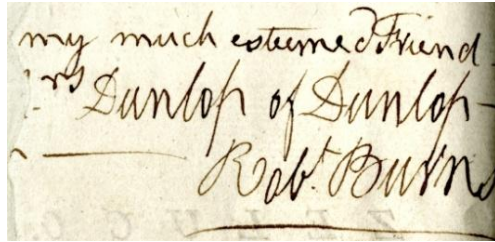 my much esteemed Friend
rs Dunlop of Dunlop
Robt. Burns